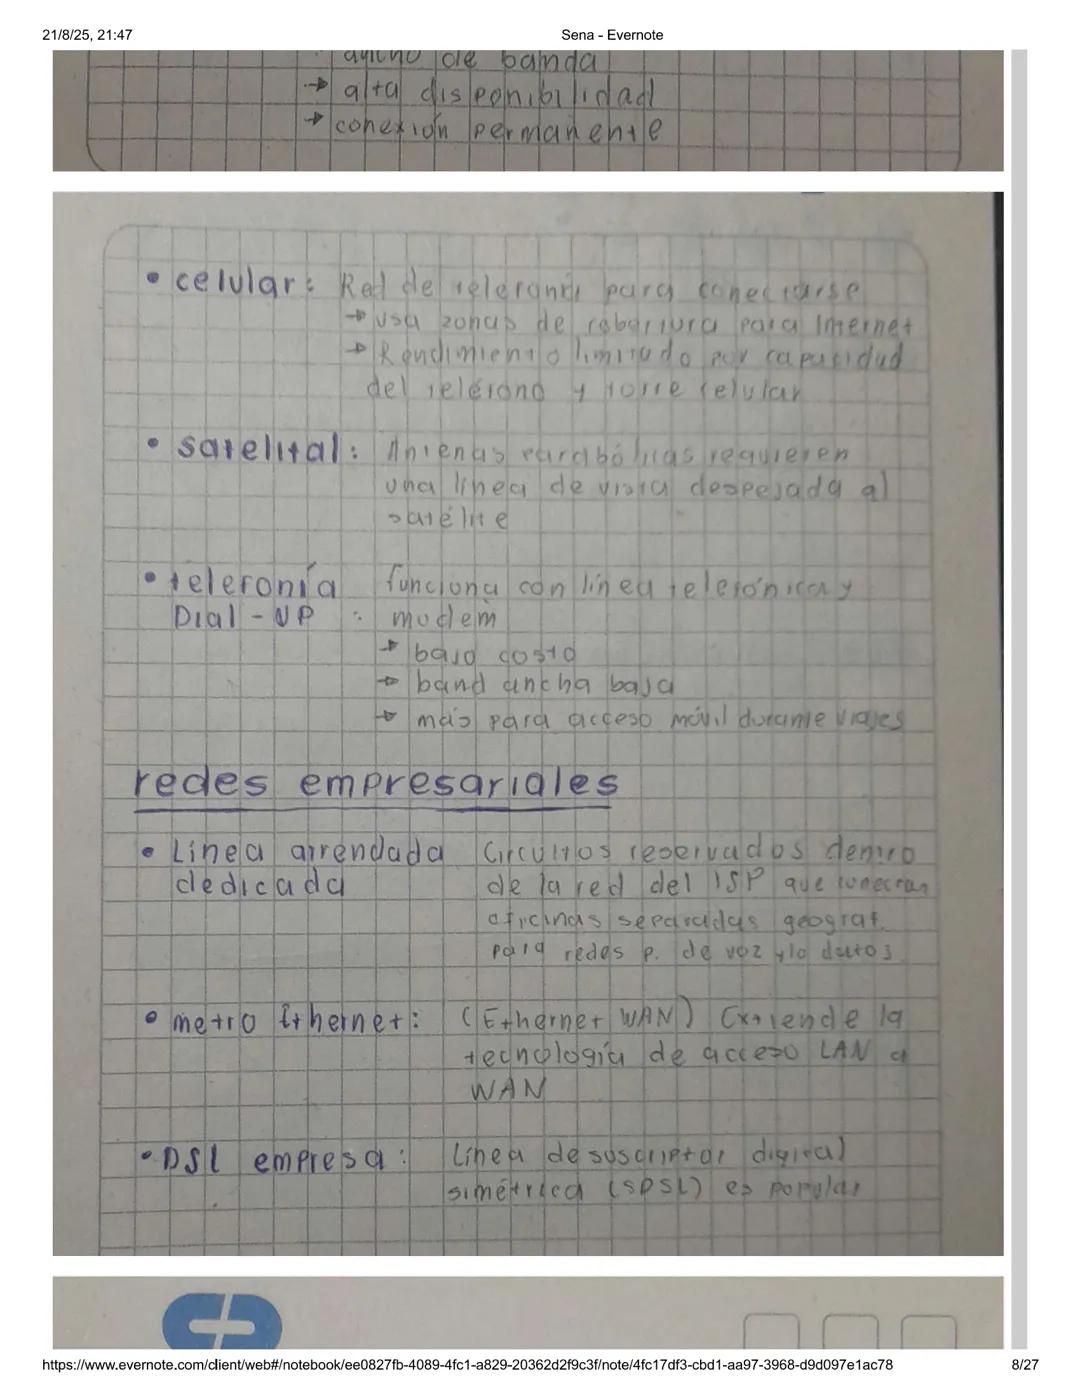 21/8/25, 21:47
Sena - Evernote
ancho de banda
→ alta disponibilidad
→ conexión permanente
• celular: Red de telefonía para conectarse
→ usa zonas de cobertura para Internet
→ Rendimiento limitado por capacidad
del teléfono y torre celular
• satelital: Antenas parabólicas requieren
una línea de vista despejada al
satélite
• telefonía funciona con línea telefónica y
Dial-UP : modem
→ bajo costo
→ band ancha baja
→ más para acceso móvil durante viajes
redes empresariales
• Línea arrendada Circuitos reservados dentro
dedicada de la red del ISP que conectan
oficinas separadas geograf.
para redes p. de voz y/o datos
• metro Ethernet: (Ethernet WAN) Extiende la
tecnología de acceso LAN a
WAN
• DSL empresa: Línea de suscriptor digital
simétrica (SDSL) es popular
https://www.evernote.com/client/web#/notebook/ee0827fb-4089-4fc1-a829-20362d2f9c3f/note/4fc17df3-cbd1-aa97-3968-d9d097e1ac78
8/27